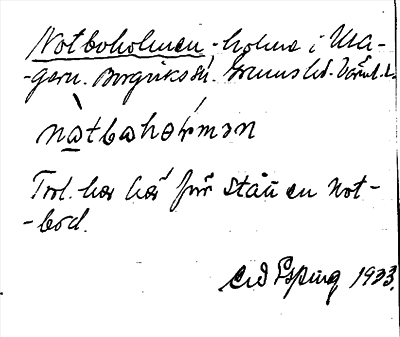 Notboholmen - holme i Ula-
-gern. Borgviks sn. Grums hd. Värml. l.
nòtbohólmən
Trol. har här förr stått en not-
-bod.
Esping 1933.